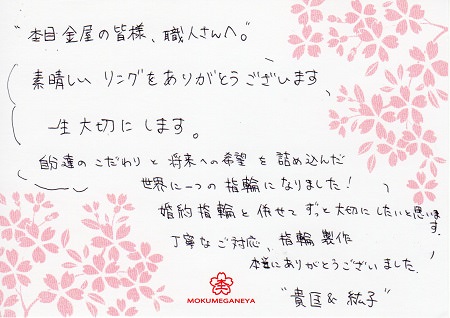 "杢目金屋の皆様、職人さんへ。"
素晴しい リングをありがとうございます、
一生大切にします。
自分達の こだわり と 将来への希望 を 詰め込んだ
世界に一つの 指輪に なりました！
婚約指輪 と 併せて ずっと 大切にしたいと思います。
丁寧なご対応、指輪 製作
本当にありがとうございました。
杢
MOKUMEGANEYA
"貴匡 & 紘子"